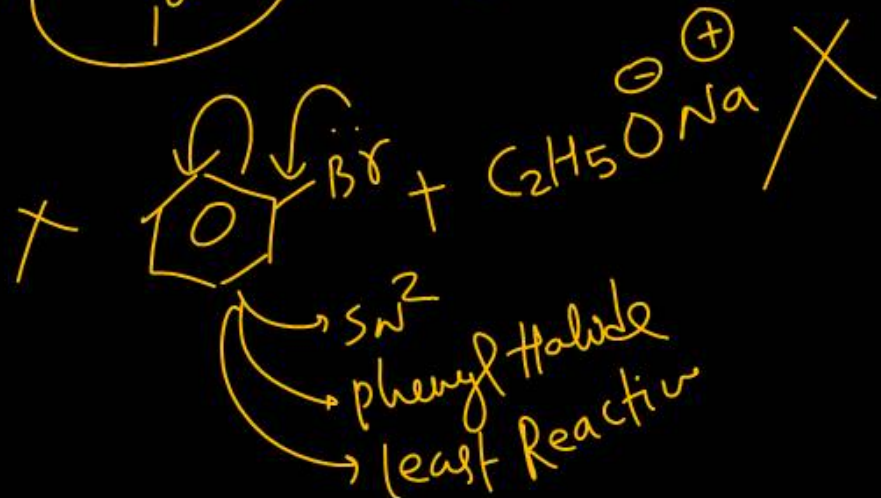 1°
Br + C2H5O⊖ Na⊕
SN2
phenyl Halide
least Reactiv